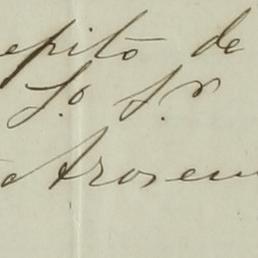 epito de
S.º S.r
Arosem